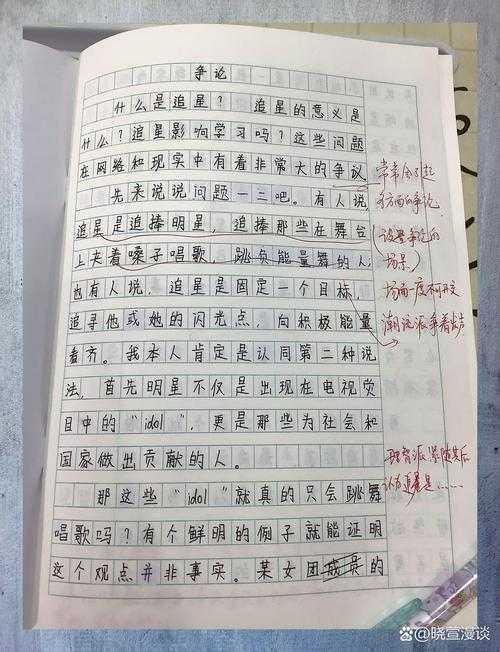 争论
什么是追星？追星的意义是
什么？追星影响学习吗？这些问题
在网络和现实中有着非常大的争议
先来说说问题一二吧。有人说，
追星是追捧明星，追捧那些在舞台
上夹着嗓子唱歌，跳负能量舞的人；
也有人说，追星是固定一个目标，
追寻他或她的闪光点，向积极能量
看齐。我本人肯定是认同第二种说
法，首先明星不仅是出现在电视炭
目中的“idol”，更是那些为社会和
国家做出贡献的人。
那这些“idol”就真的只会跳舞
唱歌吗？有个鲜明的例子就能证明
这个观点并非事实。某女团成员的
常常会引起
各方面的争论
（设置争论的
场景）
场面一度不可开交
潮流派争着发声
理智派紧随其后
认为更是……
@晓萱漫谈